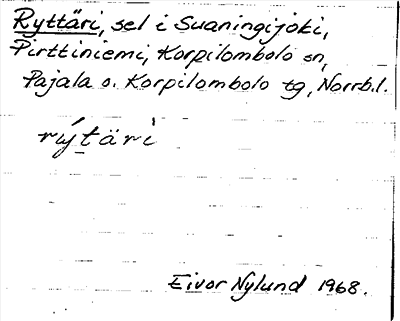 Ryttäri, sel i Suaningijoki,
Pirttiniemi, Korpilombolo sn,
Pajala o. Korpilombolo tg, Norrb.l.
rýtäri
Eivor Nylund 1968.